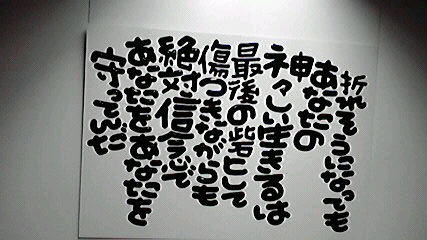 折れそうになっても
あなたの
神々しい生きるは
最後の砦として
傷つきながらも
絶対信念で
あなたをあなたを
守ってんだ